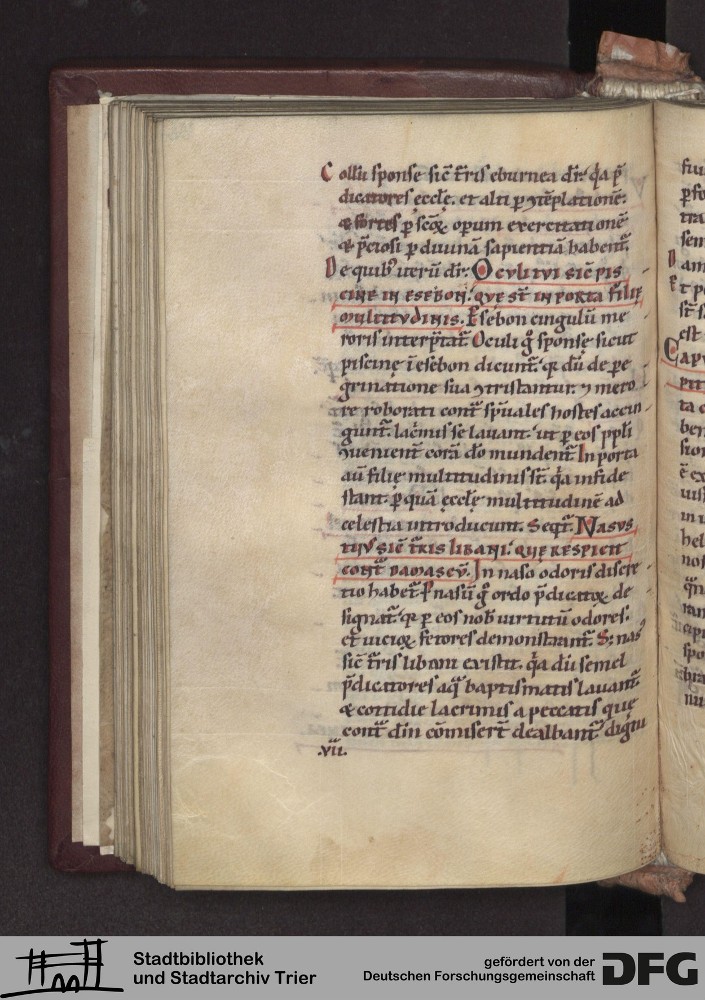 Collū sponse sic̄ t̄ris eburnea dr̄. q̇a p̄
dicatores eccłę. et alti p ɔtēplationē.
& fortes p scōꝝ opum exercitationē
& p̄ciosi p diuinā sapientiā habent̄.
De quib; uerū dr̄. Ocvli tvi sic̄ pis
cine in esebon. qvę st̄ in porta filię
mvltitvdinis. Esebon cingulū me
roris interp̄tat̄. Oculi g̊ sponsę sicut
piscinę ī esebon dicunt̄. q̇ dū de pe
grinatione sua ɔtristantur. ⁊ mero
re roborati cont̄ sp̄uales hostes accin
gunt̄. lac̄mis se lauant. ut p eos ppłi
ɔuenient̄ corā dō mundent̄. In porta
aū filię multitudinis st̄. q̇a in fide
stant. p quā ęccłę multitudinē ad
celestia introducunt. Seqt̄. Nasvs
tvvs sic̄ t̄ris libani. qvę respicit
cont̄ damascv̄. In naso odoris discre
tio habet̄. P nasū g̊ ordo p̄dicatoꝝ de
signat̄. q̇ p eos nob̄ uirtutū odores.
et uicioꝝ fetores demonstrant̄. S; nas᷒
sic̄ t̄ris libani existit. q̇a dū semel
p̄dicatores aq̇ baptismatis lauant̄.
& cottidie lacrimis a peccatis quę
cont̄ dn̄m cōmisert̄ dealbant̄. dignū
.vii.
Stadtbibliothek
und Stadtarchiv Trier
gefördert von der
Deutschen Forschungsgemeinschaft
DFG